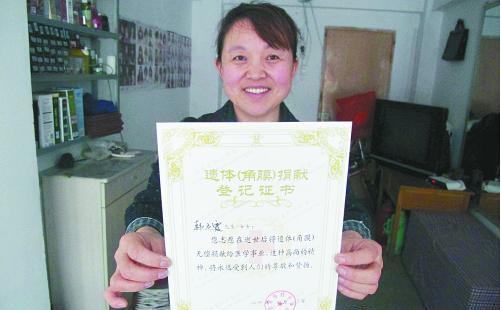 遗体(角膜)捐献
登记证书
您志愿在逝世后将遗体(角膜)
无偿捐献给医学事业，这种高尚的精
神，将永远受到人们的尊敬和赞扬。